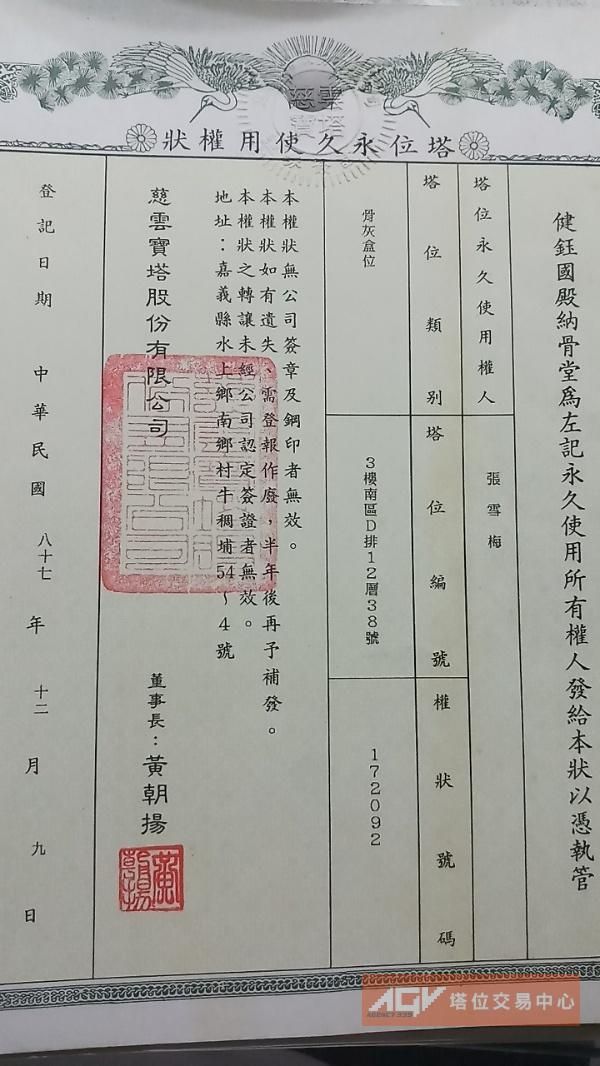 慈雲
寶塔
塔位永久使用權狀
健鈺國殿納骨堂為左記永久使用所有權人發給本狀以憑執管
塔位永久使用權人
張雪梅
塔位類別
塔位編號
權狀號碼
骨灰盒位
3樓南區D排12層38號
172092
本權狀無公司簽章及鋼印者無效。
本權狀如有遺失、需登報作廢，半年後再予補發。
本權狀之轉讓未經公司認定簽證者無效。
地址：嘉義縣水上鄉南鄉村牛稠埔54～4號
慈雲寶塔股份有限公司
董事長：黃朝揚
登記日期 中華民國 八十七 年 十二 月 九 日
AGV 塔位交易中心
AGENCY 339